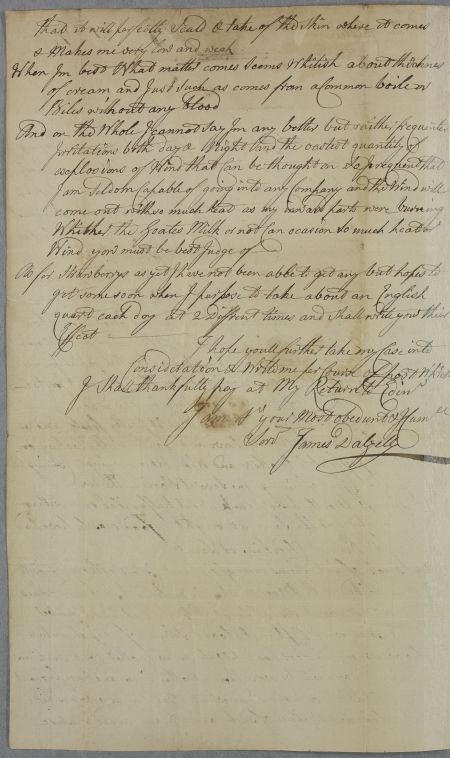 that it will perfectly Scald & take of the Skin where it comes
& Makes me very low and weak
When Im best What matter comes seems Whitish about thickness
of cream and Just Such as comes from a Common boile or
Biles without any blood
And on the Whole I cannot say Im any better but raither frequinter
Irritations both day & Night And the vastest quantity of
explocions of Wind that Can be thought on & so frequent that
I am Seldom capable of going into any Company and the Wind will
come out with so much heat as my inward parts were burning
Whither the Goates Milk or not Can ocasion so much heat or
Wind you must be best Judge of
As for Strawberrys as yet I have not been able to get any but hopes to
get some soon when I purpose to take about an English
quart each day at 2 Diffrent times and Shall write you their
Effect
I hope youll further take my Case into
Consideration & Write me per Course of Post Which
I Shall thankfully pay at My Return to Edinr
I am Sr your Most obedient & Hum
Servt James Dalzell